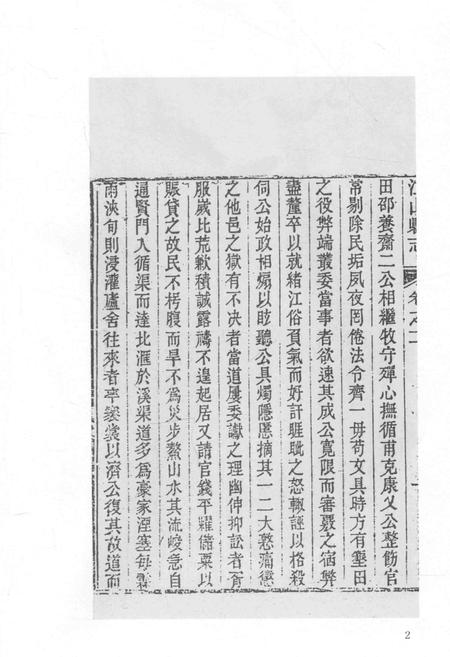 江山縣志 卷之二
田邵養齋二公相繼牧守殫心撫循甫克康乂公整飭官
常剔除民垢夙夜罔倦法令齊一毋苟文具時方有墾田
之役弊端叢委當事者欲速其成公寬限而審覈之宿弊
盡釐卒以就緒江俗負氣而好訐睚眦之怒輙誣以格殺
伺公始政相煽以眩聽公具燭隱慝摘其一二大憝痛懲
之他邑之獄有不决者當道屢委讞之理幽伸抑訟者胥
服歲比荒歉積誠露禱不遑起居又請官錢平糴儲粟以
賑貸之故民不枵腹而旱不為災步鰲山水其流峻急自
通賢門入循渠而達北滙於溪渠道多為豪家湮塞每霖
雨浹旬則浸灌廬舍往來者率褰裳以濟公復其故道而
2